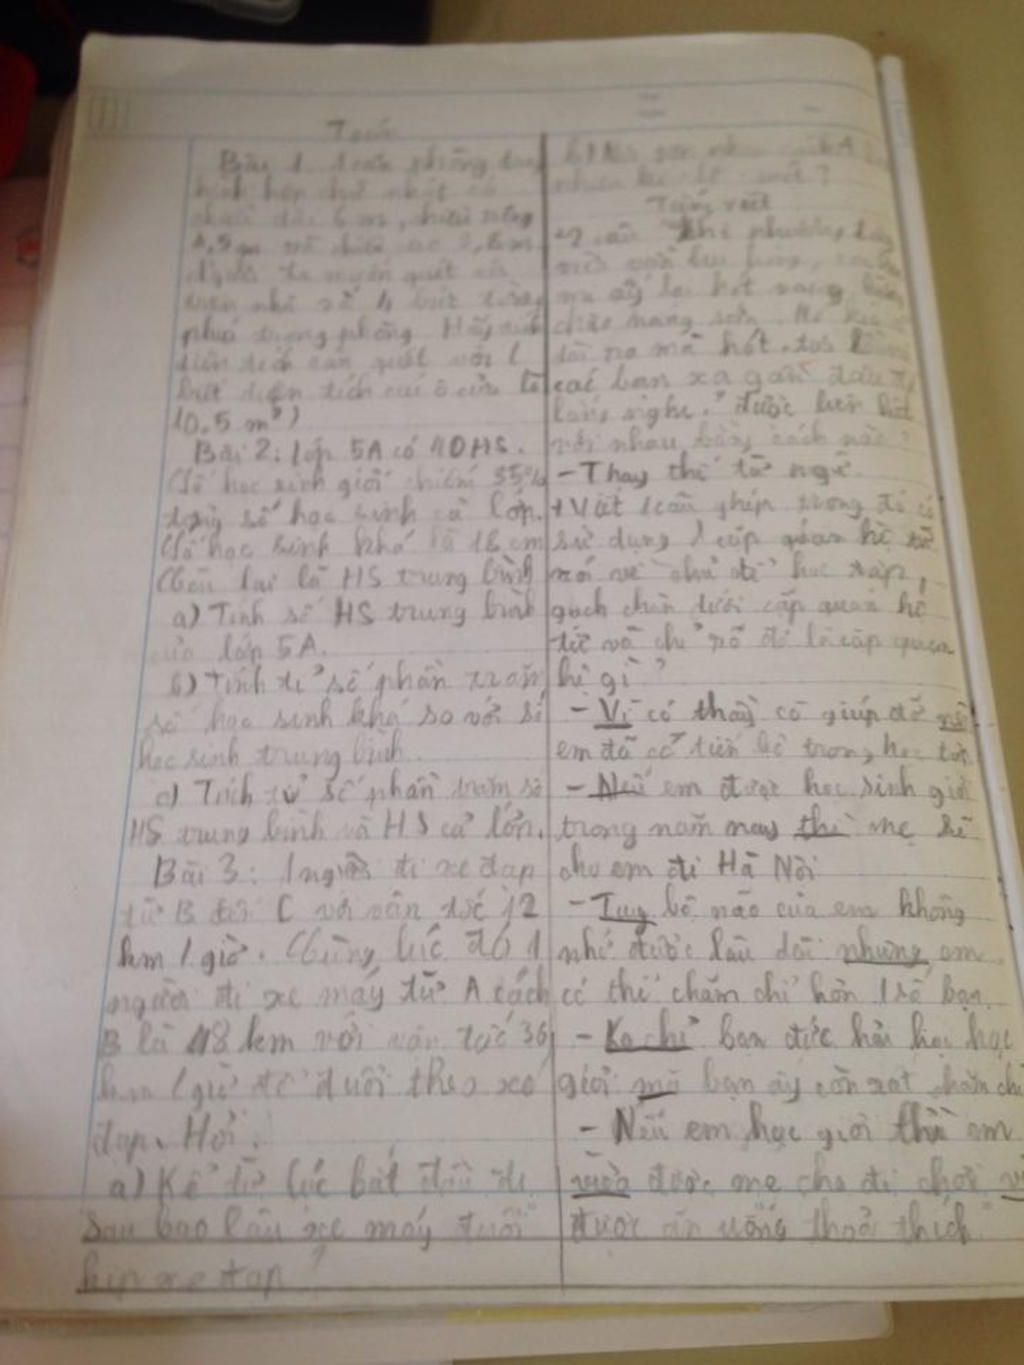 Toán
Bài 1 1 căn phòng dạng
hình hộp chữ nhật có
chiều dài 6 m, chiều rộng
4,5m và chiều cao
Người ta muốn quét vôi
trần nhà và 4 bức tường
phía trong phòng. Hãy tính
diện tích cần quét vôi (
biết diện tích các ô cửa là
10.5 m²)
Bài 2: lớp 5A có 40HS.
Số học sinh giỏi chiếm 35%
tổng số học sinh cả lớp.
Số học sinh khá là 18 em
Còn lại là HS trung bình
a) Tính số HS trung bình
của lớp 5A.
b) Tính tỉ số phần trăm
số học sinh khá so với số
học sinh trung bình.
c) Tính tỉ số phần trăm số
HS trung bình và HS cả lớp.
Bài 3: 1 người đi xe đạp
từ B đến C với vận tốc 12
km / giờ. Cùng lúc đó 1
người đi xe máy từ A cách
B là 48 km với vận tốc 36
km / giờ để đuổi theo xe
đạp. Hỏi.
a) Kể từ lúc bắt đầu đi
sau bao lâu xe máy đuổi
kịp xe đạp?
Tiếng việt
các bạn xa gần đâu đó
lắng nghe." được liên kết
với nhau bằng cách nào?
- Thay thế từ ngữ
+ Viết 1 câu ghép trong đó có
sử dụng 1 cặp quan hệ từ
nói về chủ đề học tập,
gạch chân dưới cặp quan hệ
từ và chỉ rõ đó là cặp quan
hệ gì?
- Vì có thầy cô giúp đỡ nên
em đã có tiến bộ trong học tập
- Nếu em được học sinh giỏi
trong năm nay thì mẹ sẽ
cho em đi Hà Nội
- Tuy bộ não của em không
nhớ được lâu dài nhưng em
có thể chăm chỉ hơn 1 số bạn
- Ko chỉ bạn đức hải học học
giỏi mà bạn ấy còn rất chăm chỉ
- Nếu em học giỏi thì em
vừa được mẹ cho đi chơi
được ăn uống thoả thích